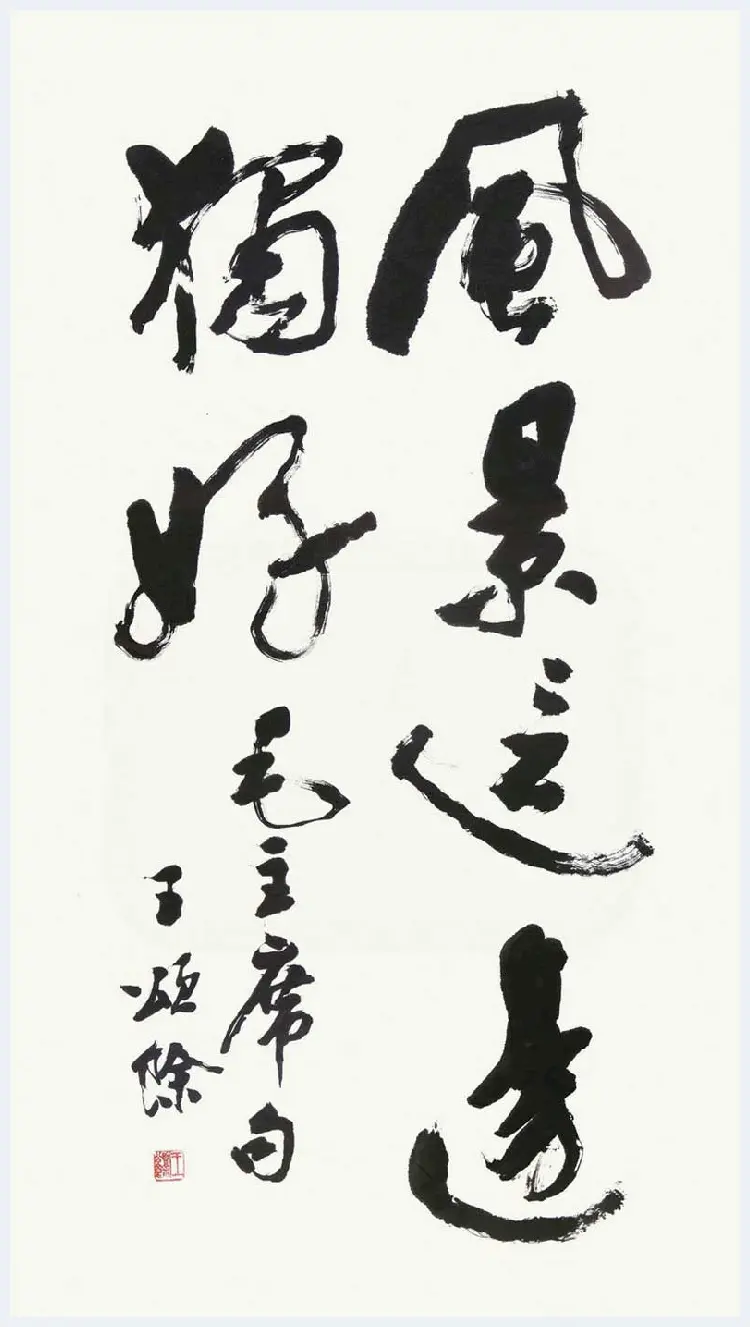 風景這邊
獨好 毛主席句
王頌餘